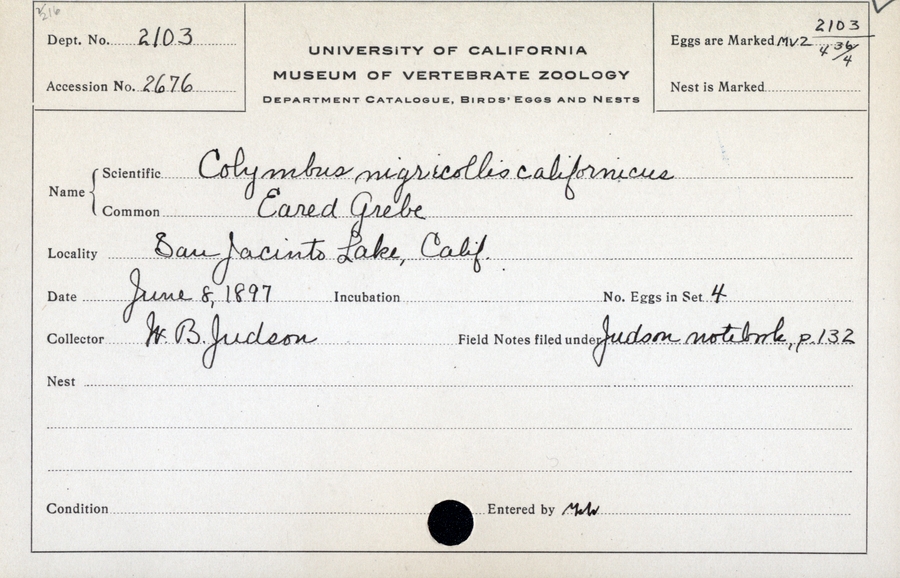 Dept. No. 2103
Accession No. 2676
UNIVERSITY OF CALIFORNIA
MUSEUM OF VERTEBRATE ZOOLOGY
DEPARTMENT CATALOGUE, BIRDS' EGGS AND NESTS
Eggs are Marked MVZ 2103
4 36/4
Nest is Marked
Name
Scientific Colymbus nigricollis californicus
Common Eared Grebe
Locality San Jacinto Lake, Calif.
Date June 8, 1897 Incubation No. Eggs in Set 4
Collector W. B. Judson Field Notes filed under Judson notebook, p. 132
Nest
Condition Entered by